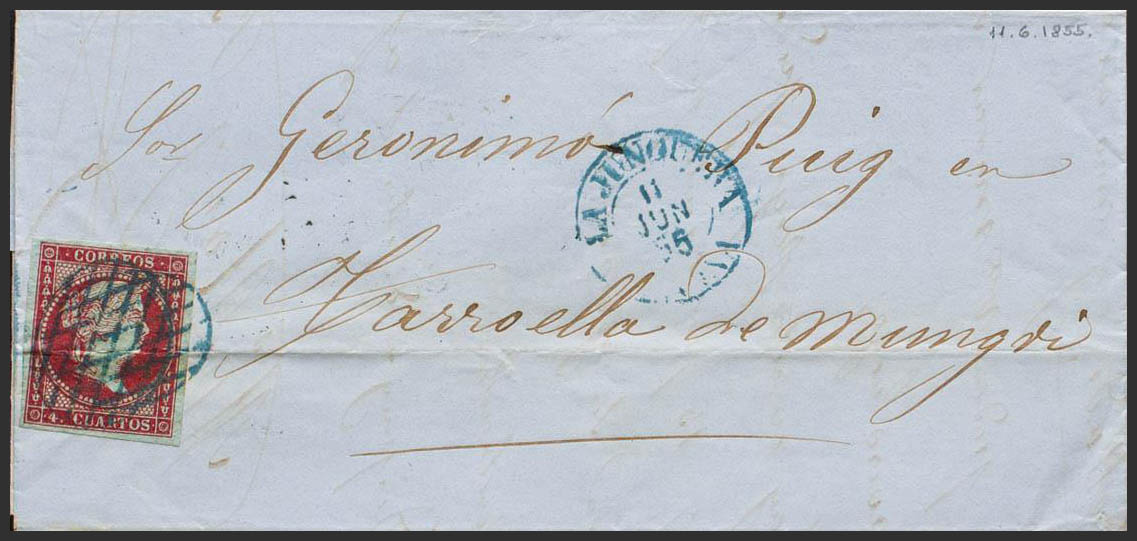 11.6.1855.
Sor Geronimo Puig en
LA JUNQUERA
11
JUN
55
Tarroella de Mungri
CORREOS
4. CUARTOS